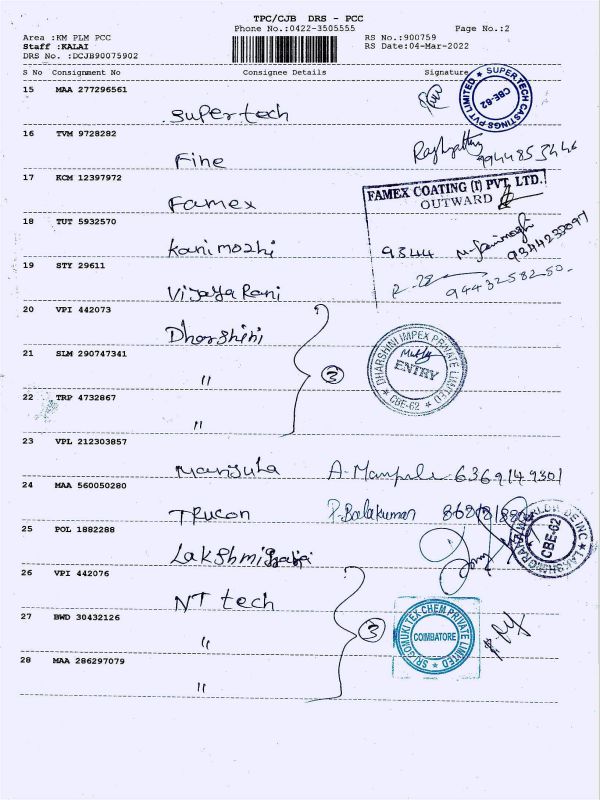 TPC/CJB DRS - PCC
Phone No.:0422-3505555 Page No.:2
Area :KM PLM PCC RS No.:900759
Staff :KALAI RS Date:04-Mar-2022
DRS No. :DCJB90075902
S No Consignment No Consignee Details Signature
15 MAA 277296561
Supertech
SUPERTECH CASTINGS PVT LIMITED
CBE-62
16 TVM 9728282
Fine 9944853446
17 KCM 12397972
Famex
FAMEX COATING (I) PVT. LTD.
OUTWARD
18 TUT 5932570
Kanimozhi 9344
9344235097
19 STY 29611
Vijaya Rani 9443258250
20 VPI 442073
Dharshini
21 SLM 290747341
" 3
DHARSHINI IMPEX PRIVATE LIMITED
ENTRY
CBE-62
22 TRP 4732867
"
23 VPL 212303857
Manjula 6369149301
24 MAA 560050280
Trucon P. Balakumar
25 POL 1882288
CBE-62
26 VPI 442076
NT tech
27 BWD 30432126
" 3
SRI GOMUKI TEX-CHEM PRIVATE LIMITED
COIMBATORE
28 MAA 286297079
"